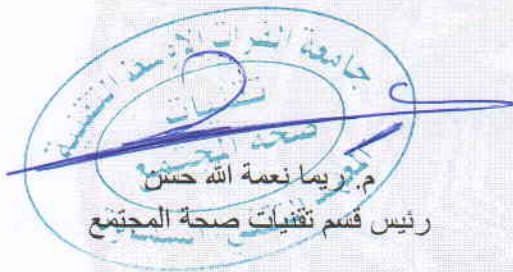 جامعة الفرات الاوسط التقنية
تقنيات
صحة المجتمع
م. ريما نعمة الله حسن
رئيس قسم تقنيات صحة المجتمع